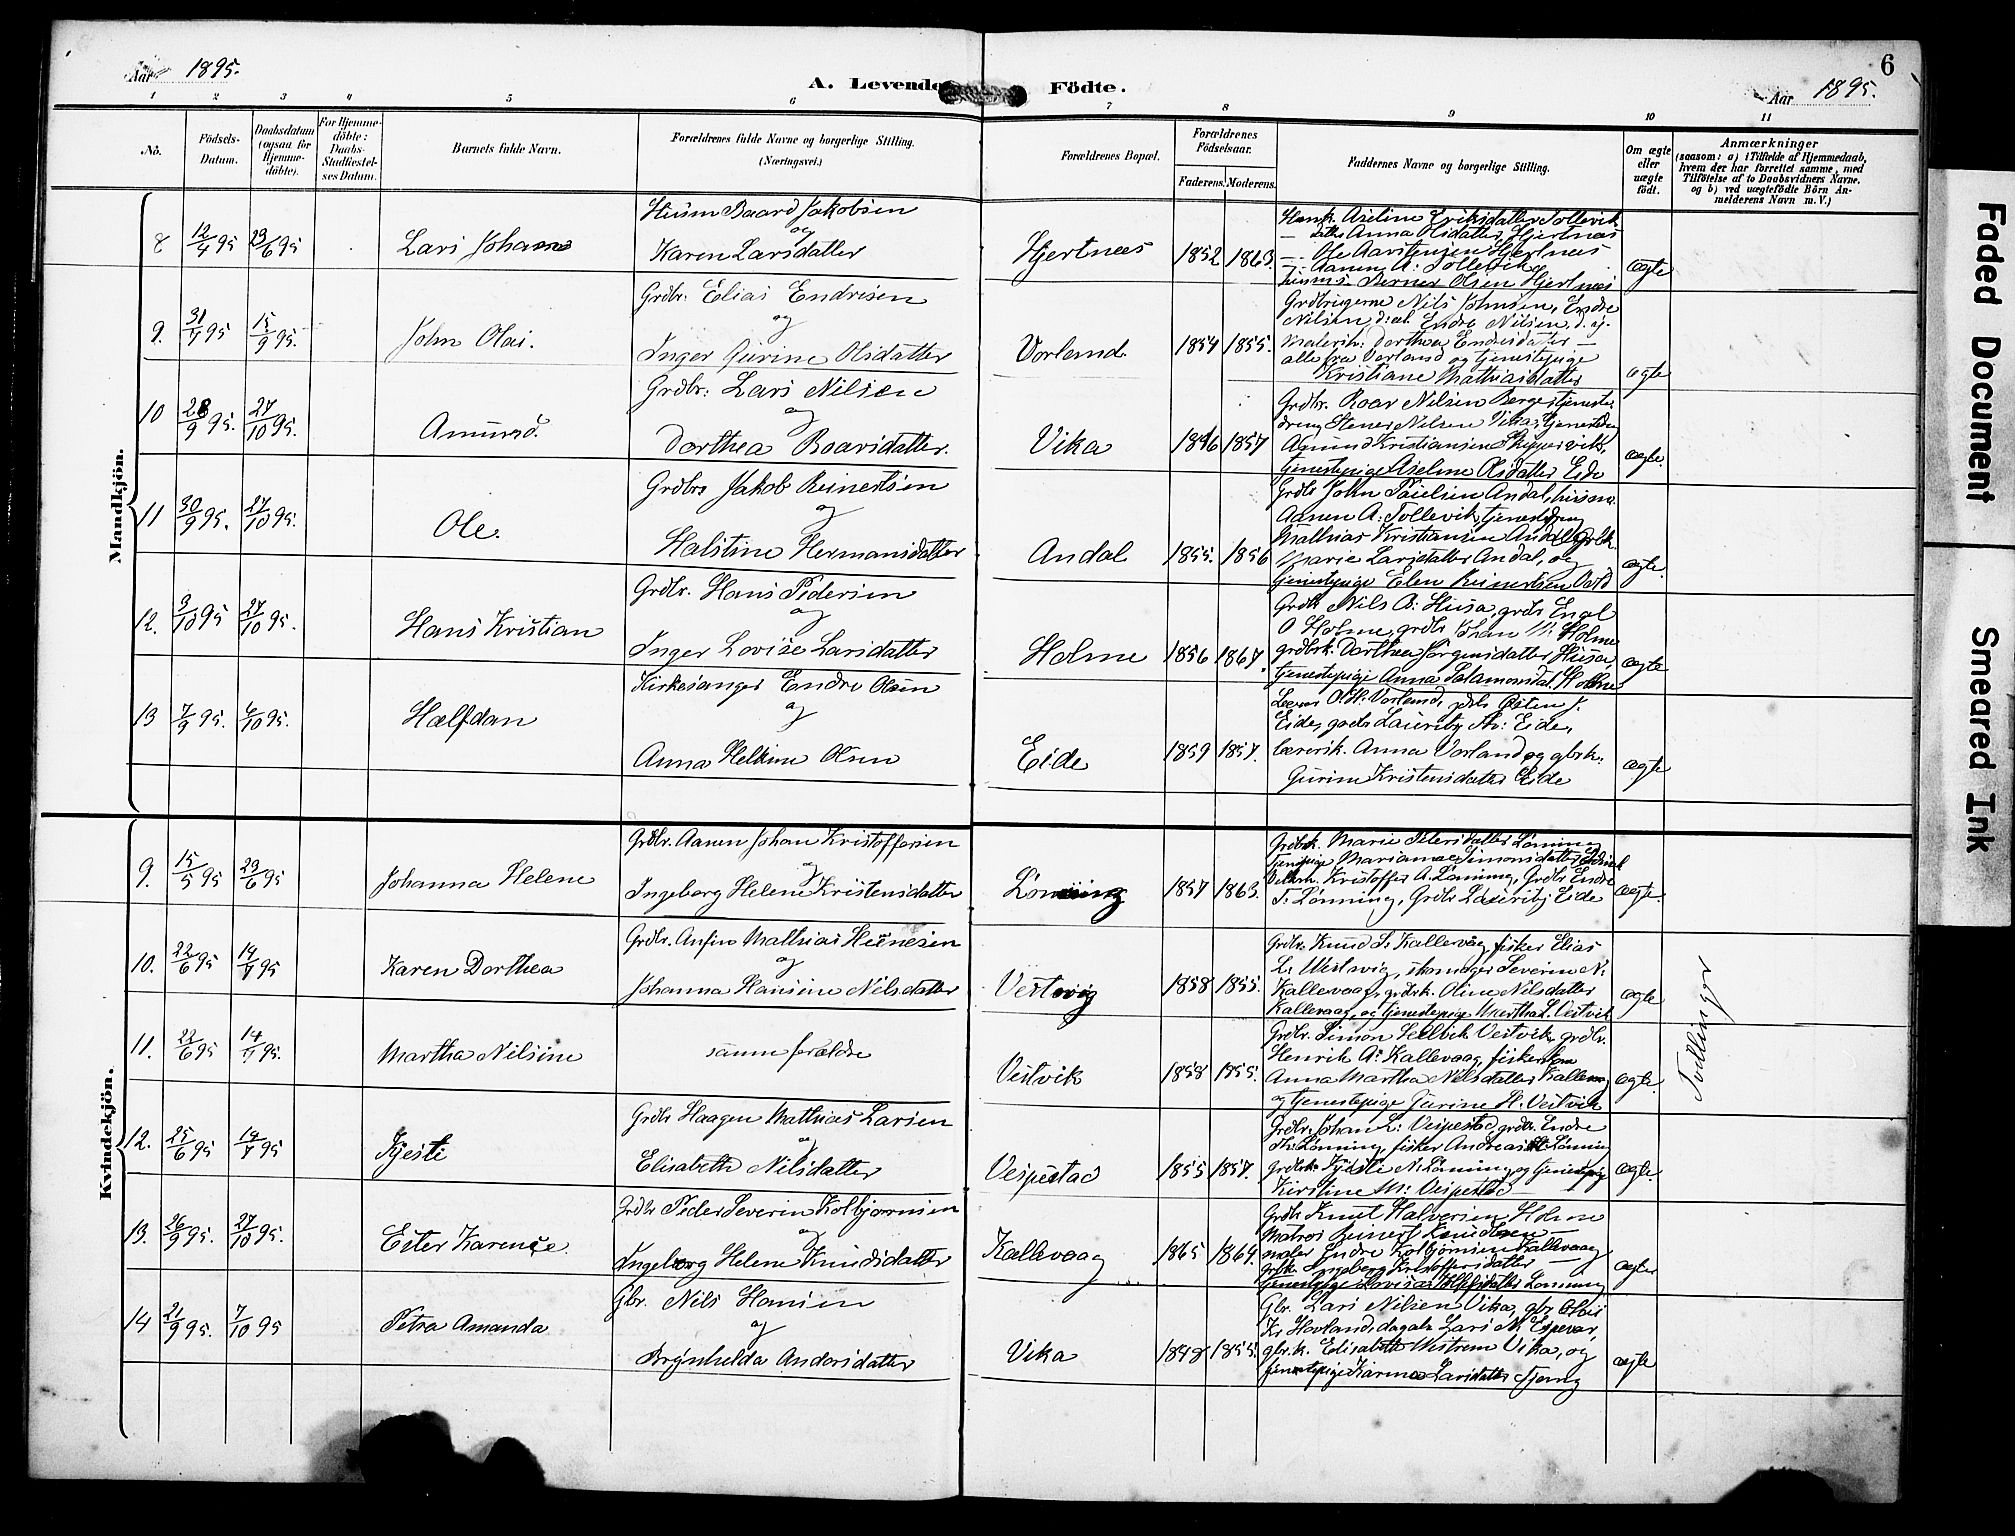 Aar 1895.
A. Levende Födte.
Aar 1895.
6
1 2 3 4 5 6 7 8 9 10 11
No.
Födsels-Datum.
Daabsdatum (ogsaa for Hjemme-döbte).
For Hjemme-döbte: Daabs-Stadfæstel-ses Datum.
Barnets fulde Navn.
Forældrenes fulde Navne og borgerlige Stilling. (Næringsvei.)
Forældrenes Bopæl.
Forældrenes Födselsaar.
Faderens. Moderens.
Faddernes Navne og borgerlige Stilling.
Om ægte eller uægte födt.
Anmærkninger
(saasom: a) i Tilfælde af Hjemmedaab, hvem der har forrettet samme, med Tilföielse af to Daabsvidners Navne. og b) ved uægtefödte Börn An-melderens Navn m. V.)
Mandkjön.
8 12/4 95 23/6 95 Lars Johan
Husm Baard Jakobsen
og
Karen Larsdatter
Hjertnæs 1852 1863.
Aseline Eriksdatter Tollevik
Anna Olsdatter Hjertnæs
Ole Aarstensen Hjertnæs
Aanen A: Tollevik
Berner Olsen Hjertnæs
ægte
9. 15/9 95. John Olai.
Grdbr. Elias Endresen
og
Inger Gurine Olsdatter
Vorland 1854 1855.
Grdbrugerne Nils Johnsen, Endre
Nilsen d: æl. Endre Nilsen, d. y.
Dorthea Endresdatter –
alle fra Vorland og tjenestepige
Kristiane Mathiasdatter
ægte
10 28/9 95. 27/10 95. Amund.
Grdbr: Lars Nilsen
og
Dorthea Roarsdatter.
Vika 1846 1857
Grdbr. Roar Nilsen Berge, tjeneste-
dreng Stener Nilsen Vika, tjenestedr
Aamund Kristiansen Skippervik,
tjenestepige Aseline Olsdatter Eide
ægte.
11 30/9 95. 27/10 95. Ole.
Grdbr Jakob Reinertsen
og
Halstine Hermansdatter
Andal 1855. 1856
Grdbr John Paielsen Andal, husm.
Aanen A: Tollevik, tjenestedreng
Mathias Kristiansen Andal, Grbk.
Marie Larsdatter Andal, og
tjenestepige Elen Reinertsen
ægte.
12. 3/10 95 27/10 95. Hans Kristian
Grdbr. Hans Pedersen
og
Inger Lovise Larsdatter
Holme 1856 1867.
Grdbr Nils B: Husa, grdbr
O Holme, grdbr Johan Holme
grdbrk. Dorthea Jørgensdatter Husa,
tjenestepige Anna Salamonsdat. Holme
ægte
13 7/9 95. 6/10 95. Halfdan
Kirkesanger Endre Olsen
og
Anna Helkine Olsen
Eide 1859 1857.
Lærer O. H: Vorland, grdbr Østen J.
Eide, grdbr Lauritz Th: Eide,
lærerk. Anna Vorland og gbrk:
Gurine Kristensdatter Eide
ægte
Kvindekjön.
9. 15/5 95 23/6 95 Johanna Helene
Grdbr. Aanen Johan Kristoffersen
og
Ingeborg Helene Kristensdatter
Lønning 1857 1863.
Grdbrk. Marie Petersdatter Lønning
Tjenstpige Marianne Simonsdatter
Kristoffer A. Lønning, Grdbr Endre
T: Lønning, Grdbr Lauritz J: Eide
ægte.
10. 22/6 95 14/7 95 Karen Dorthea
Grdbr. Anfin Mathias Heinesen
og
Johanna Hansine Nilsdatter
Vestvig 1858 1855.
Grdbr. Knud S. Kallevåg, fisker Elias
L: Westvig, skomager Severin N:
Kallevaag, grdbrk. Oline Nilsdatter
Kallevaag, og tjenestepige Martha L. Vestvik
ægte
11. 22/6 95 14/7 95. Martha Nilsine
samme forældre
Vestvik 1858 1855.
Grdbr. Simon Vestvik, grdbr.
Henrik A: Kallevaag, fiskerkone
Anna Martha Nilsdatter Kallevaag
og tjenestepige Gurine H: Vestvik
ægte.
Tvillinger
12. 25/6 95 14/7 95 Kjesti
Grdbr Haagen Mathias Larsen
og
Elisabeth Nilsdatter
Vespestad 1855 1857.
Grdbr. Johan L: Vespestad, grdbr. Endre
Th: Lønning, fisker Andreas Lønning
grdbrk. Kjesti N. Lønning og tjenestepige
Kirstine M: Vespestad –
ægte.
13. 26/9 95. 27/10 95. Ester Karense.
Grdbr Peder Severin Kolbjørnsen
og
Ingeborg Helene Knudsdatter
Kallevaag 1865 1869.
Grdbr Knut Halversen Holme
Matros Knudsen –
maler Endre Kolbjørnsen Kallevaag
grbk. Ingeborg Kristoffersdatter
tjenestepige Lovisa Lønning
ægte
14 21/9 95. 7/10 95 Petra Amanda
Gbr. Nils Hansen
og
Brynhelda Andersdatter
Vika 1848 1855.
Gbr. Lars Nilsen Vika, gbr
Kr Hovland, dagab. Lars M. Espevær,
gbr.k. Elisabeth Vika, og
tjenestepige Karina Larsdatter
ægte
Faded Document
Smeared Ink